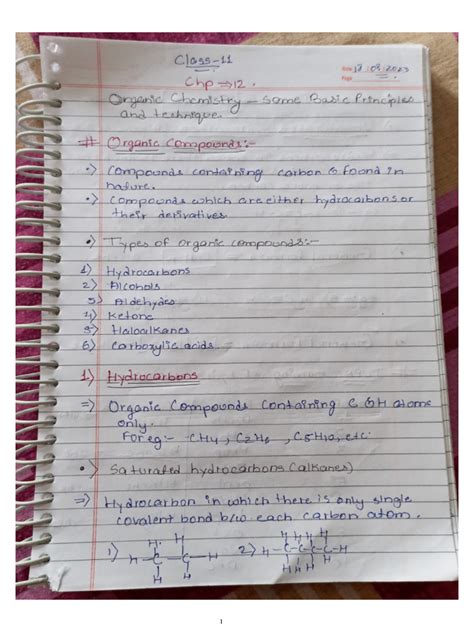 Class-11
Date 12/08/2023
Page
Chp ⇒ 12.
Organic Chemistry - Some Basic Principles
and technique.
# Organic Compounds:-
•) Compounds containing carbon & found in
nature.
•) Compounds which are either hydrocarbons or
their derivatives
•) Types of organic compounds:-
1) Hydrocarbons
2) Alcohols
3) Aldehydes
4) Ketone
5) Haloalkanes
6) Carboxylic acids.
1) Hydrocarbons
⇒) Organic Compounds Containing C & H atoms
only.
For eg:- CH4, C2H6, C5H10, etc.
•) Saturated hydrocarbons (alkanes)
⇒) Hydrocarbon in which there is only single
covalent bond b/w each carbon atom.
1) H H
H-C-C-H
H H
2) H H H H
H-C-C-C-C-H
H H H H
1